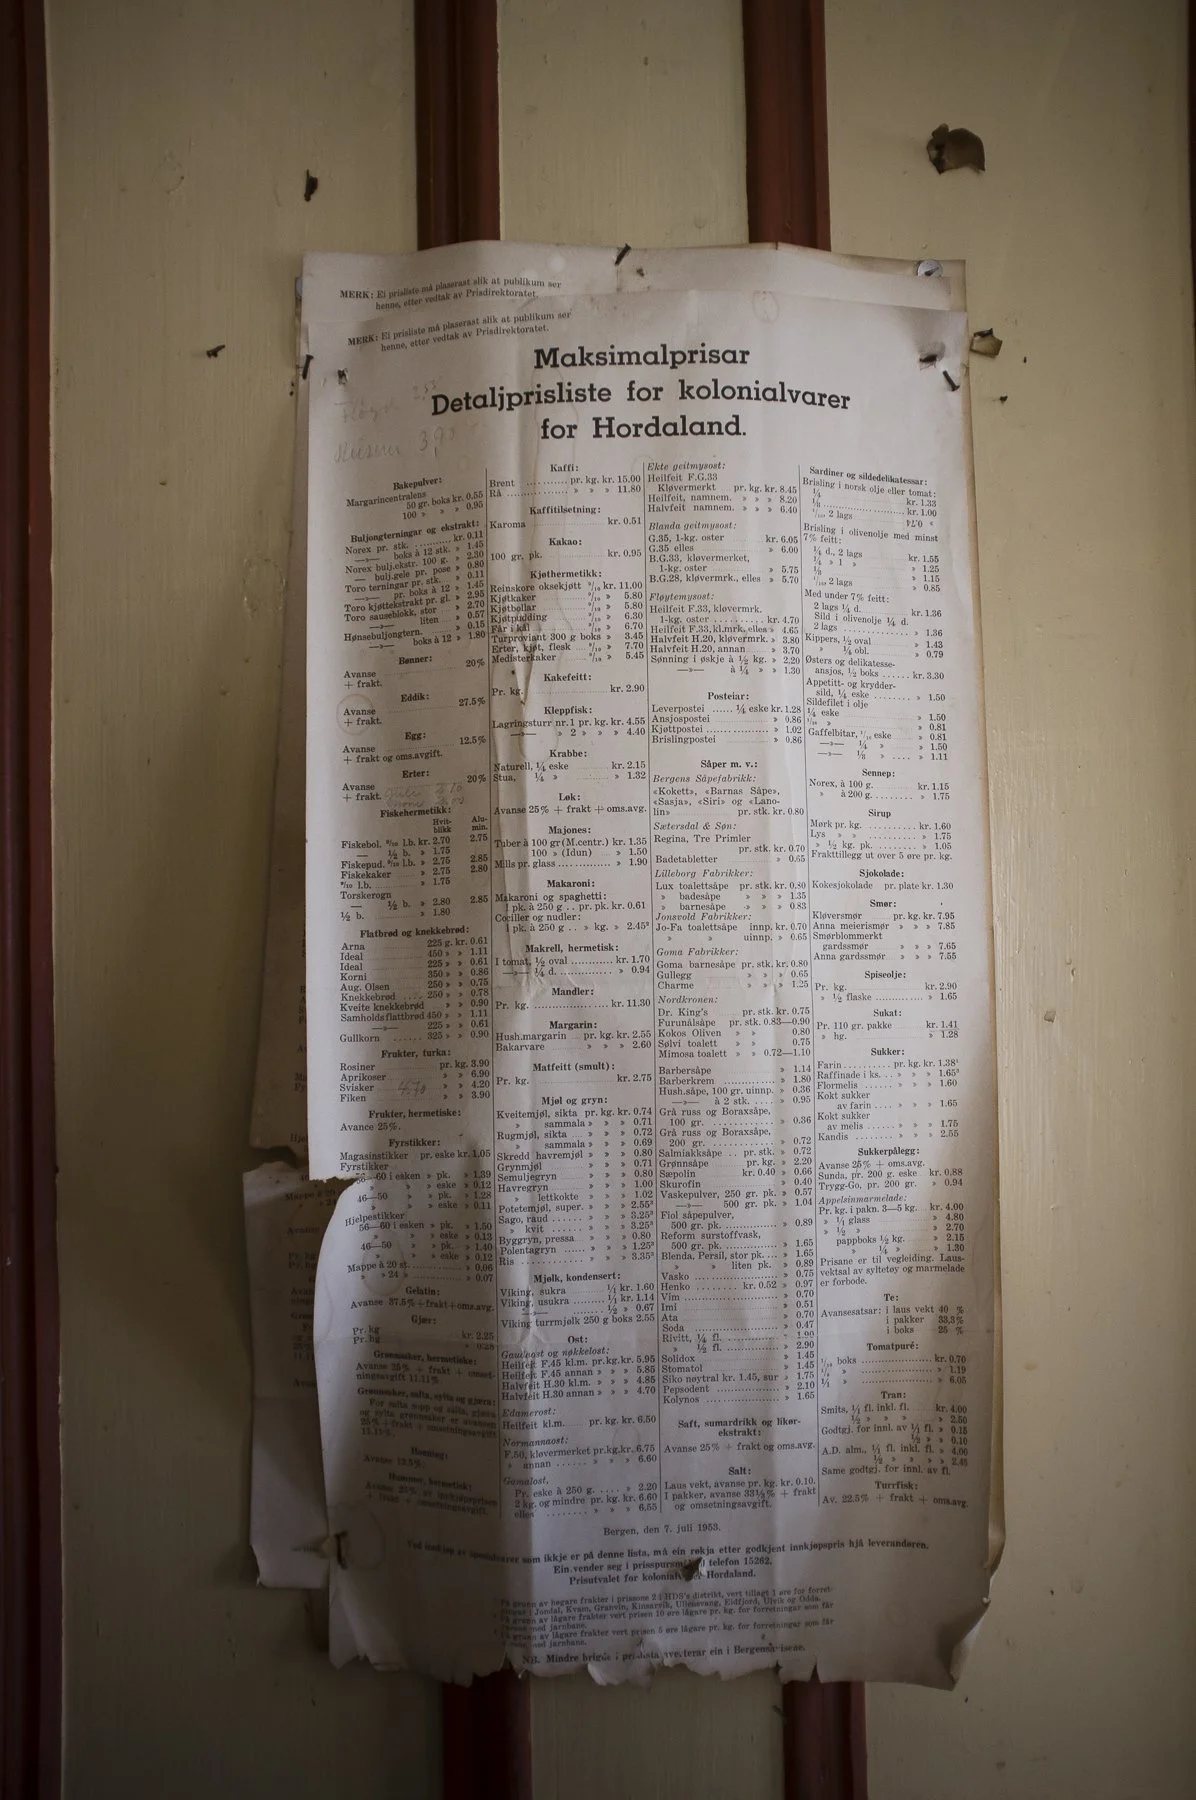 MERK: Ei prisliste må plaserast slik at publikum ser
henne, etter vedtak av Prisdirektoratet.
MERK: Ei prisliste må plaserast slik at publikum ser
henne, etter vedtak av Prisdirektoratet.
Maksimalprisar
Detaljprisliste for kolonialvarer
for Hordaland.
Bakepulver:
Margarincentralens
50 gr. boks kr. 0.55
100 » » » 0.95
Buljongterninger og ekstrakt:
Norex pr. stk. kr. 0.11
—»— boks à 12 stk. » 1.45
Norex bulj.ekstr. 100 g. » 2.30
— bulj.gele pr. pose » 0.80
Toro terninger pr. stk. » 0.11
—»— pr. boks à 12 » 1.45
Toro kjøttekstrakt pr. gl. » 2.95
Toro sauseblokk, stor » 2.70
—»— liten » 0.57
Hønsebuljongtern. » 0.15
—»— boks à 12 » 1.80
Bønner:
Avanse 20%
+ frakt.
Eddik:
Avanse 27.5%
+ frakt.
Egg:
Avanse 12.5%
+ frakt og oms.avgift.
Erter:
Avanse 20%
+ frakt.
Fiskehermetikk:
Hvit- Alu-
blikk min.
Fiskebol. 9/10 l.b. kr. 2.70 2.75
— ½ b. » 1.75
Fiskepud. 9/10 l.b. » 2.75 2.85
Fiskekaker » 2.75 2.80
9/10 l.b. » 1.75
Torskerogn
— ½ b. » 2.80 2.85
½ b. » 1.80
Flatbrød og knekkebrød:
Arna 225 g. kr. 0.61
Ideal 450 » » 1.11
Ideal 225 » » 0.61
Korni 350 » » 0.86
Aug. Olsen 250 » » 0.75
Knekkebrød 250 » » 0.78
Kveite knekkebrød » 0.90
Samholds flattbrød 450 » » 1.11
—»— 225 » » 0.61
Gullkorn 325 » » 0.90
Frukter, turka:
Rosiner pr. kg. 3.90
Aprikoser » » 6.90
Svisker » » 4.20
Fiken » » 3.90
Frukter, hermetiske:
Avance 25%.
Fyrstikker:
Magasinstikker pr. eske kr. 1.05
Fyrstikker
56—60 i esken » pk. » 1.39
» » eske » 0.12
46—50 » pk. » 1.28
» » eske » 0.11
Hjelpestikker
56—60 i esken » pk. » 1.50
» » eske » 0.13
46—50 » pk. » 1.40
» » eske » 0.12
Mappe à 20 st. » 0.06
» » 24 » » 0.07
Gelatin:
Avanse 37.5% + frakt + oms.avg.
Gjær:
Pr. kg kr. 2.25
Pr. hg » 0.28
Grønsaker, hermetiske:
Avanse 25% + frakt + omset-
ningsavgift 11.11%
Grønsaker, salta, sylta og gjæra:
Honning:
Avanse 12.5%
Hummer, hermetisk:
Kaffi:
Brent pr. kg. kr. 15.00
Rå » » » 11.80
Kaffitilsetning:
Karoma kr. 0.51
Kakao:
100 gr. pk. kr. 0.95
Kjøthermetikk:
Reinskore oksekjøtt 9/10 kr. 11.00
Kjøtkaker 9/10 » 5.80
Kjøtbollar 9/10 » 5.80
Kjøtpudding 9/10 » 6.30
Får i kål 9/10 » 6.70
Turproviant 300 g boks » 3.45
Erter, kjøt, flesk 9/10 » 7.70
Medisterkaker 9/10 » 5.45
Kakefeitt:
Pr. kg. kr. 2.90
Kleppfisk:
Lagringsturr nr. 1 pr. kg. kr. 4.55
—»— » 2 » » 4.40
Krabbe:
Naturell, ¼ eske kr. 2.15
Stua, ¼ » » 1.32
Løk:
Avanse 25% + frakt + oms.avg.
Majones:
Tuber à 100 gr (M.centr.) kr. 1.35
100 » (Idun) » 1.50
Mills pr. glass » 1.90
Makaroni:
Makaroni og spaghetti:
1 pk. à 250 g . . pr. pk. kr. 0.61
Coqiller og nudler:
1 pk. à 250 g . . » kg. » 2.45²
Makrell, hermetisk:
I tomat, ½ oval kr. 1.70
—»— ¼ d. » 0.94
Mandler:
Pr. kg. kr. 11.30
Margarin:
Hush.margarin pr. kg. kr. 2.55
Bakarvare » » » 2.60
Matfeitt (smult):
Pr. kg. kr. 2.75
Mjøl og gryn:
Kveitemjøl, sikta pr. kg. kr. 0.74
» sammala » » 0.71
Rugmjøl, sikta » » 0.72
» sammala » » 0.69
Skredd havremjøl » » 0.80
Grynmjøl » » 0.71
Semuljegryn » » 0.80
Havregryn » » 1.00
» lettkokte » » 1.02
Potetemjøl, super. » » 2.55³
Sago, raud » » 3.25³
» kvit » » 3.25³
Byggryn, pressa » » 0.80
Polentagryn » » 1.25³
Ris » » 3.35³
Mjølk, kondensert:
Viking, sukra ¹/₁ kr. 1.60
Viking, usukra ¹/₁ kr. 1.14
—»— ½ » 0.67
Viking turrmjølk 250 g boks 2.55
Ost:
Gaudaost og nøkkelost:
Heilfeit F.45 kl.m. pr.kg.kr. 5.95
Heilfeit F.45 annan » » 5.85
Halvfeit H.30 kl.m. » » 4.85
Halvfeit H.30 annan » » 4.70
Edamerost:
Heilfeit kl.m. pr. kg. kr. 6.50
Normannaost:
F.50, kløvermerket pr.kg.kr. 6.75
» annan » » 6.60
Gamalost,
Pr. eske à 250 g. » 2.20
2 kg. og mindre pr. kg. kr. 6.60
elles » » » 6.55
Ekte geitmysost:
Heilfeit F.G.33
Kløvermerkt pr. kg. kr. 8.45
Heilfeit, namnem. » » » 8.20
Halvfeit namnem. » » » 6.40
Blanda geitmysost:
G.35, 1-kg. oster kr. 6.05
G.35 elles » 6.00
B.G.33, kløvermerket,
1-kg. oster » 5.75
B.G.28, kløvermrk., elles » 5.70
Fløytemysost:
Heilfeit F.33, kløvermrk.
1-kg. oster kr. 4.70
Heilfeit F.33, kl.mrk, elles » 4.65
Halvfeit H.20, kløvermrk. » 3.80
Halvfeit H.20, annan » 3.70
Sønning i øskje à ½ kg. » 2.20
—»— à ¼ » » 1.30
Posteiar:
Leverpostei ¼ eske kr. 1.28
Ansjospostei » 0.86
Kjøttpostei » 1.02
Brislingpostei » 0.86
Såper m. v.:
Bergens Såpefabrikk:
«Kokett», «Barnas Såpe»,
«Sasja», «Siri» og «Lano-
lin» pr. stk. kr. 0.80
Sætersdal & Søn:
Regina, Tre Primler
pr. stk. kr. 0.70
Badetabletter » 0.65
Lilleborg Fabrikker:
Lux toalettsåpe pr. stk. kr. 0.80
» badesåpe » » 1.35
» barnesåpe » » 0.83
Jonsvold Fabrikker:
Jo-Fa toalettsåpe innp. kr. 0.70
» » uinnp. » 0.65
Goma Fabrikker:
Goma barnesåpe pr. stk. kr. 0.80
Gullegg » » » 0.65
Charme » » » 1.25
Nordkronen:
Dr. King's pr. stk. kr. 0.75
Furunålsåpe pr. stk. 0.83—0.90
Kokos Oliven » » 0.80
Sølvi toalett » » 0.75
Mimosa toalett » » 0.72—1.10
Barbersåpe » 1.14
Barberkrem » 1.80
Hush.såpe, 100 gr. uinnp. » 0.36
—»— à 2 stk. » 0.95
Grå russ og Boraxsåpe,
100 gr. » 0.36
Grå russ og Boraxsåpe,
200 gr. » 0.72
Salmiakksåpe pr. stk. » 0.72
Grønnsåpe pr. kg. » 2.20
Sæpolin kr. 0.40 » 0.66
Skurofin » 0.40
Vaskepulver, 250 gr. pk. » 0.57
—»— 500 gr. pk. » 1.04
Fiol såpepulver,
500 gr. pk. » 0.89
Reform surstoffvask,
500 gr. pk. » 1.65
Blenda, Persil, stor pk. » 1.65
» » liten pk. » 0.89
Vasko » 0.75
Henko kr. 0.52 » 0.97
Vim » 0.70
Imi » 0.51
Ata » 0.70
Soda » 0.47
Rivitt, ¼ fl. 1.90
» ½ fl. » 2.90
Solidox » 1.45
Stomatol » 1.45
Siko nøytral kr. 1.45, sur » 1.75
Pepsodent » 2.10
Kolynos » 1.65
Saft, sumardrikk og likør-
ekstrakt:
Avanse 25% + frakt og oms.avg.
Salt:
Laus vekt, avanse pr. kg. kr. 0.10.
I pakker, avanse 33⅓% + frakt
og omsetningsavgift.
Sardiner og sildedelikatessar:
Brisling i norsk olje eller tomat:
¼ kr. 1.33
⅛ kr. 1.00
2 lags » 0.74
Brisling i olivenolje med minst
7% feitt:
¼ d., 2 lags kr. 1.55
¼ » 1 » » 1.25
⅛ » 1.15
2 lags » 0.85
Med under 7% feitt:
2 lags ¼ d. kr. 1.36
Sild i olivenolje ¼ d.
2 lags » 1.36
Kippers, ½ oval » 1.43
» ¼ obl. » 0.79
Østers og delikatesse-
ansjos, ½ boks kr. 3.30
Appetitt- og krydder-
sild, ¼ eske » 1.50
Sildefilet i olje
¼ eske » 1.50
1/10 » » 0.81
Gaffelbitar, 1/10 eske » 0.81
—»— ¼ » » 1.50
—»— ⅛ » » 1.11
Sennep:
Norex, à 100 g. kr. 1.15
» à 200 g. » 1.75
Sirup
Mørk pr. kg. kr. 1.60
Lys » » » 1.75
» ½ kg. pk. » 1.05
Frakttillegg ut over 5 øre pr. kg.
Sjokolade:
Kokesjokolade pr. plate kr. 1.30
Smør:
Kløversmør pr. kg. kr. 7.95
Anna meierismør » » » 7.85
Smørblommerkt
gardssmør » » » 7.65
Anna gardssmør » » » 7.55
Spiseolje:
Pr. kg. kr. 2.90
» ½ flaske » 1.65
Sukat:
Pr. 110 gr. pakke kr. 1.41
» hg. » 1.28
Sukker:
Farin pr. kg. kr. 1.38¹
Raffinade i ks. » » » 1.65³
Flormelis » » » 1.60
Kokt sukker
av farin » » » 1.65
Kokt sukker
av melis » » » 1.75
Kandis » » » 2.55
Sukkerpålegg:
Avanse 25% + oms.avg.
Sunda, pr. 200 g. eske kr. 0.88
Trygg-Go, pr. 200 gr. » 0.94
Appelsinmarmelade:
Pr. kg. i pakn. 3—5 kg. kr. 4.00
» ¹/₁ glass » 4.80
» ½ » » 2.70
pappboks ½ kg. » 2.15
» ¼ » » 1.30
Prisane er til vegleiding. Laus-
vektsal av syltetøy og marmelade
er forbode.
Te:
Avansesatsar: i laus vekt 40 %
i pakker 33,3%
i boks 25 %
Tomatpuré:
1/10 boks kr. 0.70
» 1.19
¹/₁ » » 6.05
Tran:
Smits, ¹/₁ fl. inkl. fl. kr. 4.00
½ » » » » 2.50
Godtgj. for innl. av ¹/₁ fl. » 0.15
½ » » 0.10
A.D. alm., ¹/₁ fl. inkl. fl. » 4.00
½ » » » » 2.45
Same godtgj. for innl. av fl.
Turrfisk:
Av. 22.5% + frakt + oms.avg.
Bergen, den 7. juli 1953.
som ikkje er på denne lista, må ein rekja etter godkjent innkjøpspris hjå leverandøren.
Ein vender seg i telefon 15262.
Prisutvalet for Hordaland.
grunn av høgare frakter i prissone 2 i HDS's distrikt, vert tillagt 1 øre for forret-
i Jondal, Kvam, Granvin, Kinsarvik, Ullensvang, Eidfjord, Ulvik og Odda.
grunn av lågare frakter vert prisen 10 øre lågare pr. kg. for forretningar som får
med jarnbane.
grunn av lågare frakter vert prisen 5 øre lågare pr. kg. for forretningar som får
med jarnbane.
NB. Mindre ein i